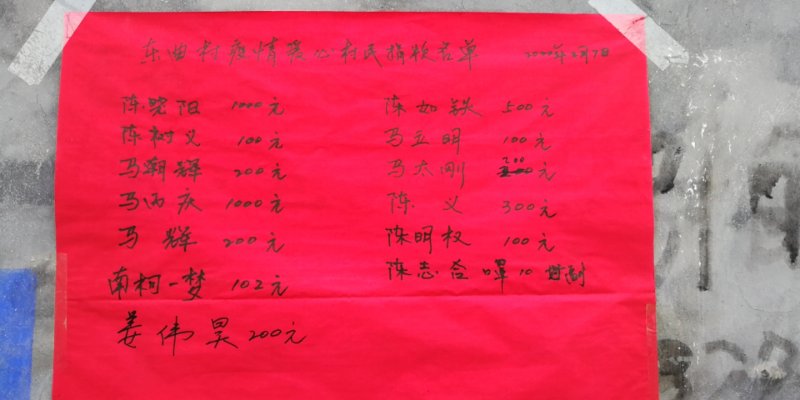 东曲村疫情暖心村民捐款名单 2020年2月7日
陈晓阳 1000元 陈如铁 500元
陈树义 100元 马立明 100元
马朝辉 200元 马太刚 200元
马丙庆 1000元 陈义 300元
马辉 200元 陈明权 100元
南柯一梦 102元 陈志 罩10
姜伟昊 200元